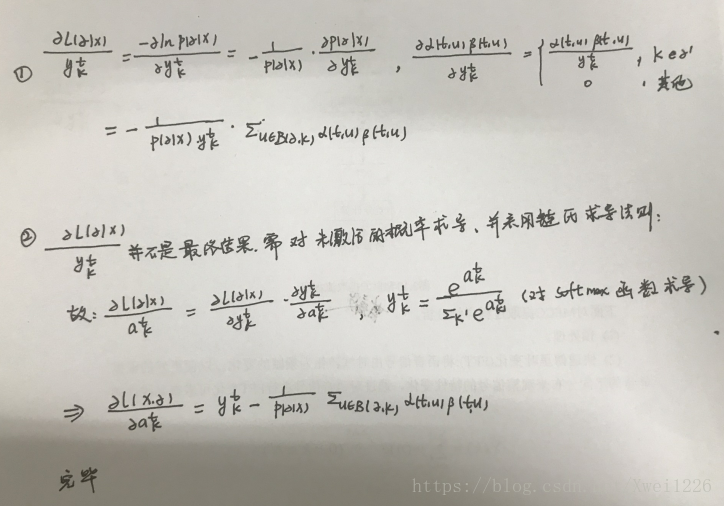 ① ∂L(z|x) / y_k^t = -∂ln p(z|x) / ∂y_k^t = - 1/p(z|x) · ∂p(z|x) / ∂y_k^t , ∂α(t,u)β(t,u) / ∂y_k^t = { α(t,u)β(t,u) / y_k^t , k∈z' ; 0 , 其他
= - 1 / p(z|x) y_k^t · Σ_{u∈B(z,k)} α(t,u)β(t,u)
② ∂L(z|x) / y_k^t 并不是最终结果. 需对未激活的概率求导、并采用链式求导法则:
故: ∂L(z|x) / a_k^t = ∂L(z|x) / ∂y_k^t · ∂y_k^t / ∂a_k^t , y_k^t = e^{a_k^t} / Σ_k' e^{a_k^t} (对softmax函数求导)
⇒ ∂L(x,z) / ∂a_k^t = y_k^t - 1/p(z|x) Σ_{u∈B(z,k)} α(t,u)β(t,u)
完毕